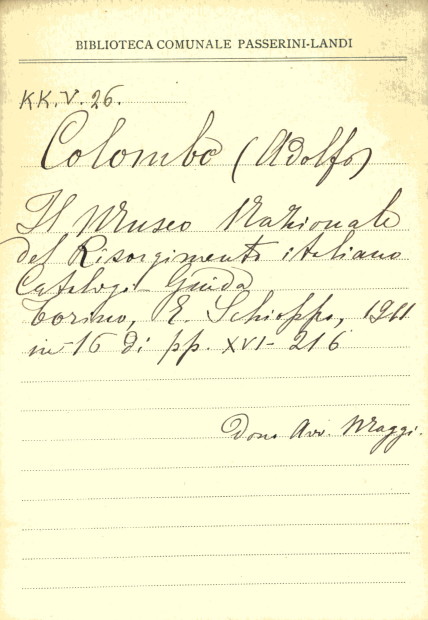 BIBLIOTECA COMUNALE PASSERINI-LANDI
KK.V.26.
Colombo (Adolfo)
Il Museo Nazionale
del Risorgimento italiano
Catalogo-Guida
Torino, E. Schioppo, 1911
in-16 di pp. XVI-216
Dono Avv. Maggi.